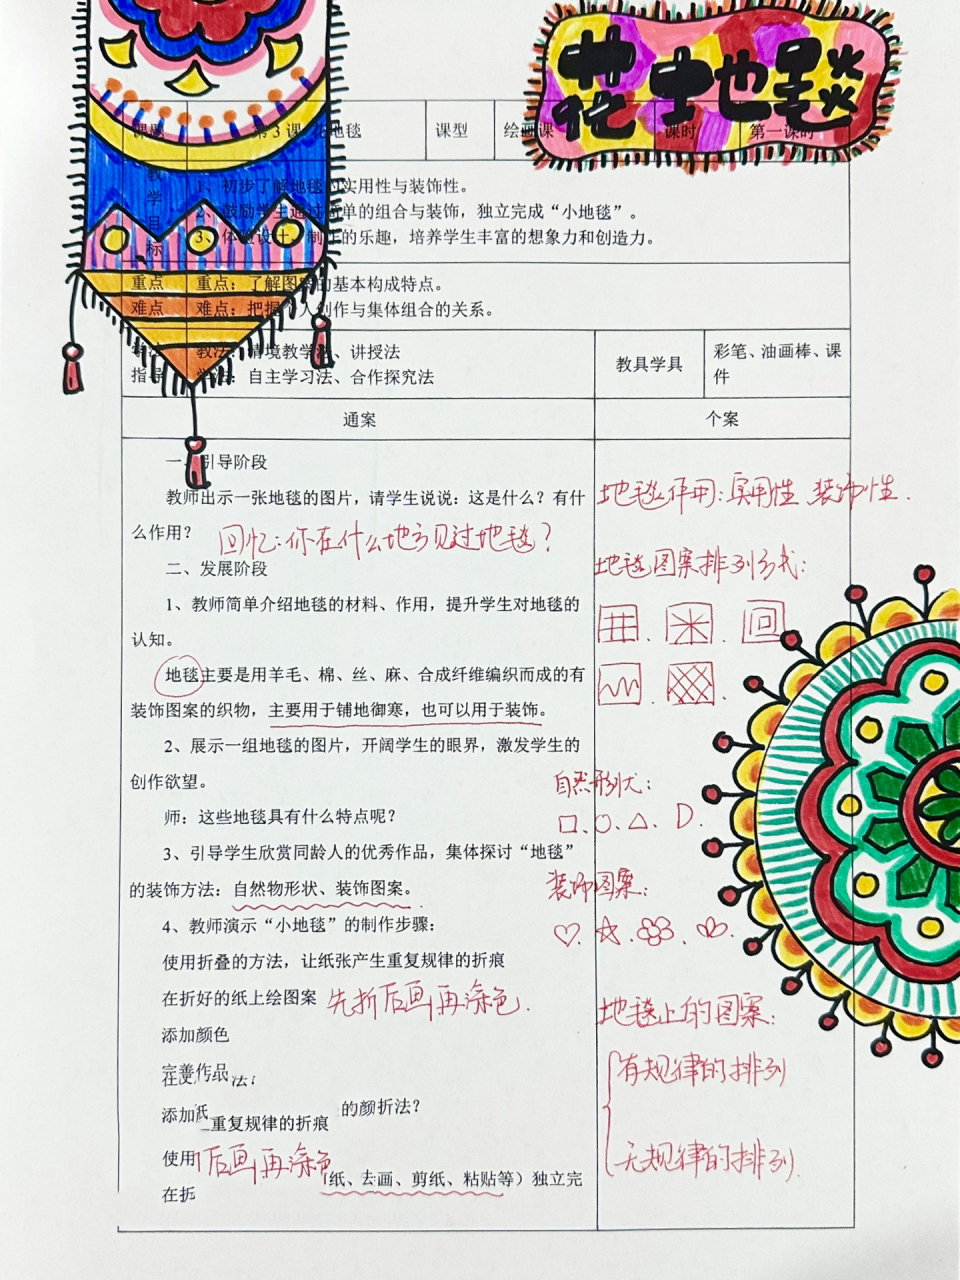 花地毯
课题 第3课 花地毯 课型 绘画课 课时 第一课时
教学目标
1、初步了解地毯的实用性与装饰性。
2、鼓励学生通过简单的组合与装饰，独立完成“小地毯”。
3、体验设计、制作的乐趣，培养学生丰富的想象力和创造力。
重点 重点：了解图案的基本构成特点。
难点 难点：把握个人创作与集体组合的关系。
教法：情境教学法、讲授法
指导 学法：自主学习法、合作探究法
教具学具 彩笔、油画棒、课件
通案 个案
一、引导阶段
教师出示一张地毯的图片，请学生说说：这是什么？有什
么作用？ 回忆：你在什么地方见过地毯？
二、发展阶段
1、教师简单介绍地毯的材料、作用，提升学生对地毯的
认知。
地毯主要是用羊毛、棉、丝、麻、合成纤维编织而成的有
装饰图案的织物，主要用于铺地御寒，也可以用于装饰。
2、展示一组地毯的图片，开阔学生的眼界，激发学生的
创作欲望。
师：这些地毯具有什么特点呢？
3、引导学生欣赏同龄人的优秀作品，集体探讨“地毯”
的装饰方法：自然物形状、装饰图案。
4、教师演示“小地毯”的制作步骤：
使用折叠的方法，让纸张产生重复规律的折痕
在折好的纸上绘图案 先折后画再涂色.
添加颜色
完善作品
法；
添加 的颜折法？
重复规律的折痕
使用 后画再涂色
纸、去画、剪纸、粘贴等）独立完
在折
地毯作用：实用性、装饰性.
地毯图案排列方式：
自然形状：
装饰图案：
地毯上的图案：
有规律的排列
无规律的排列.